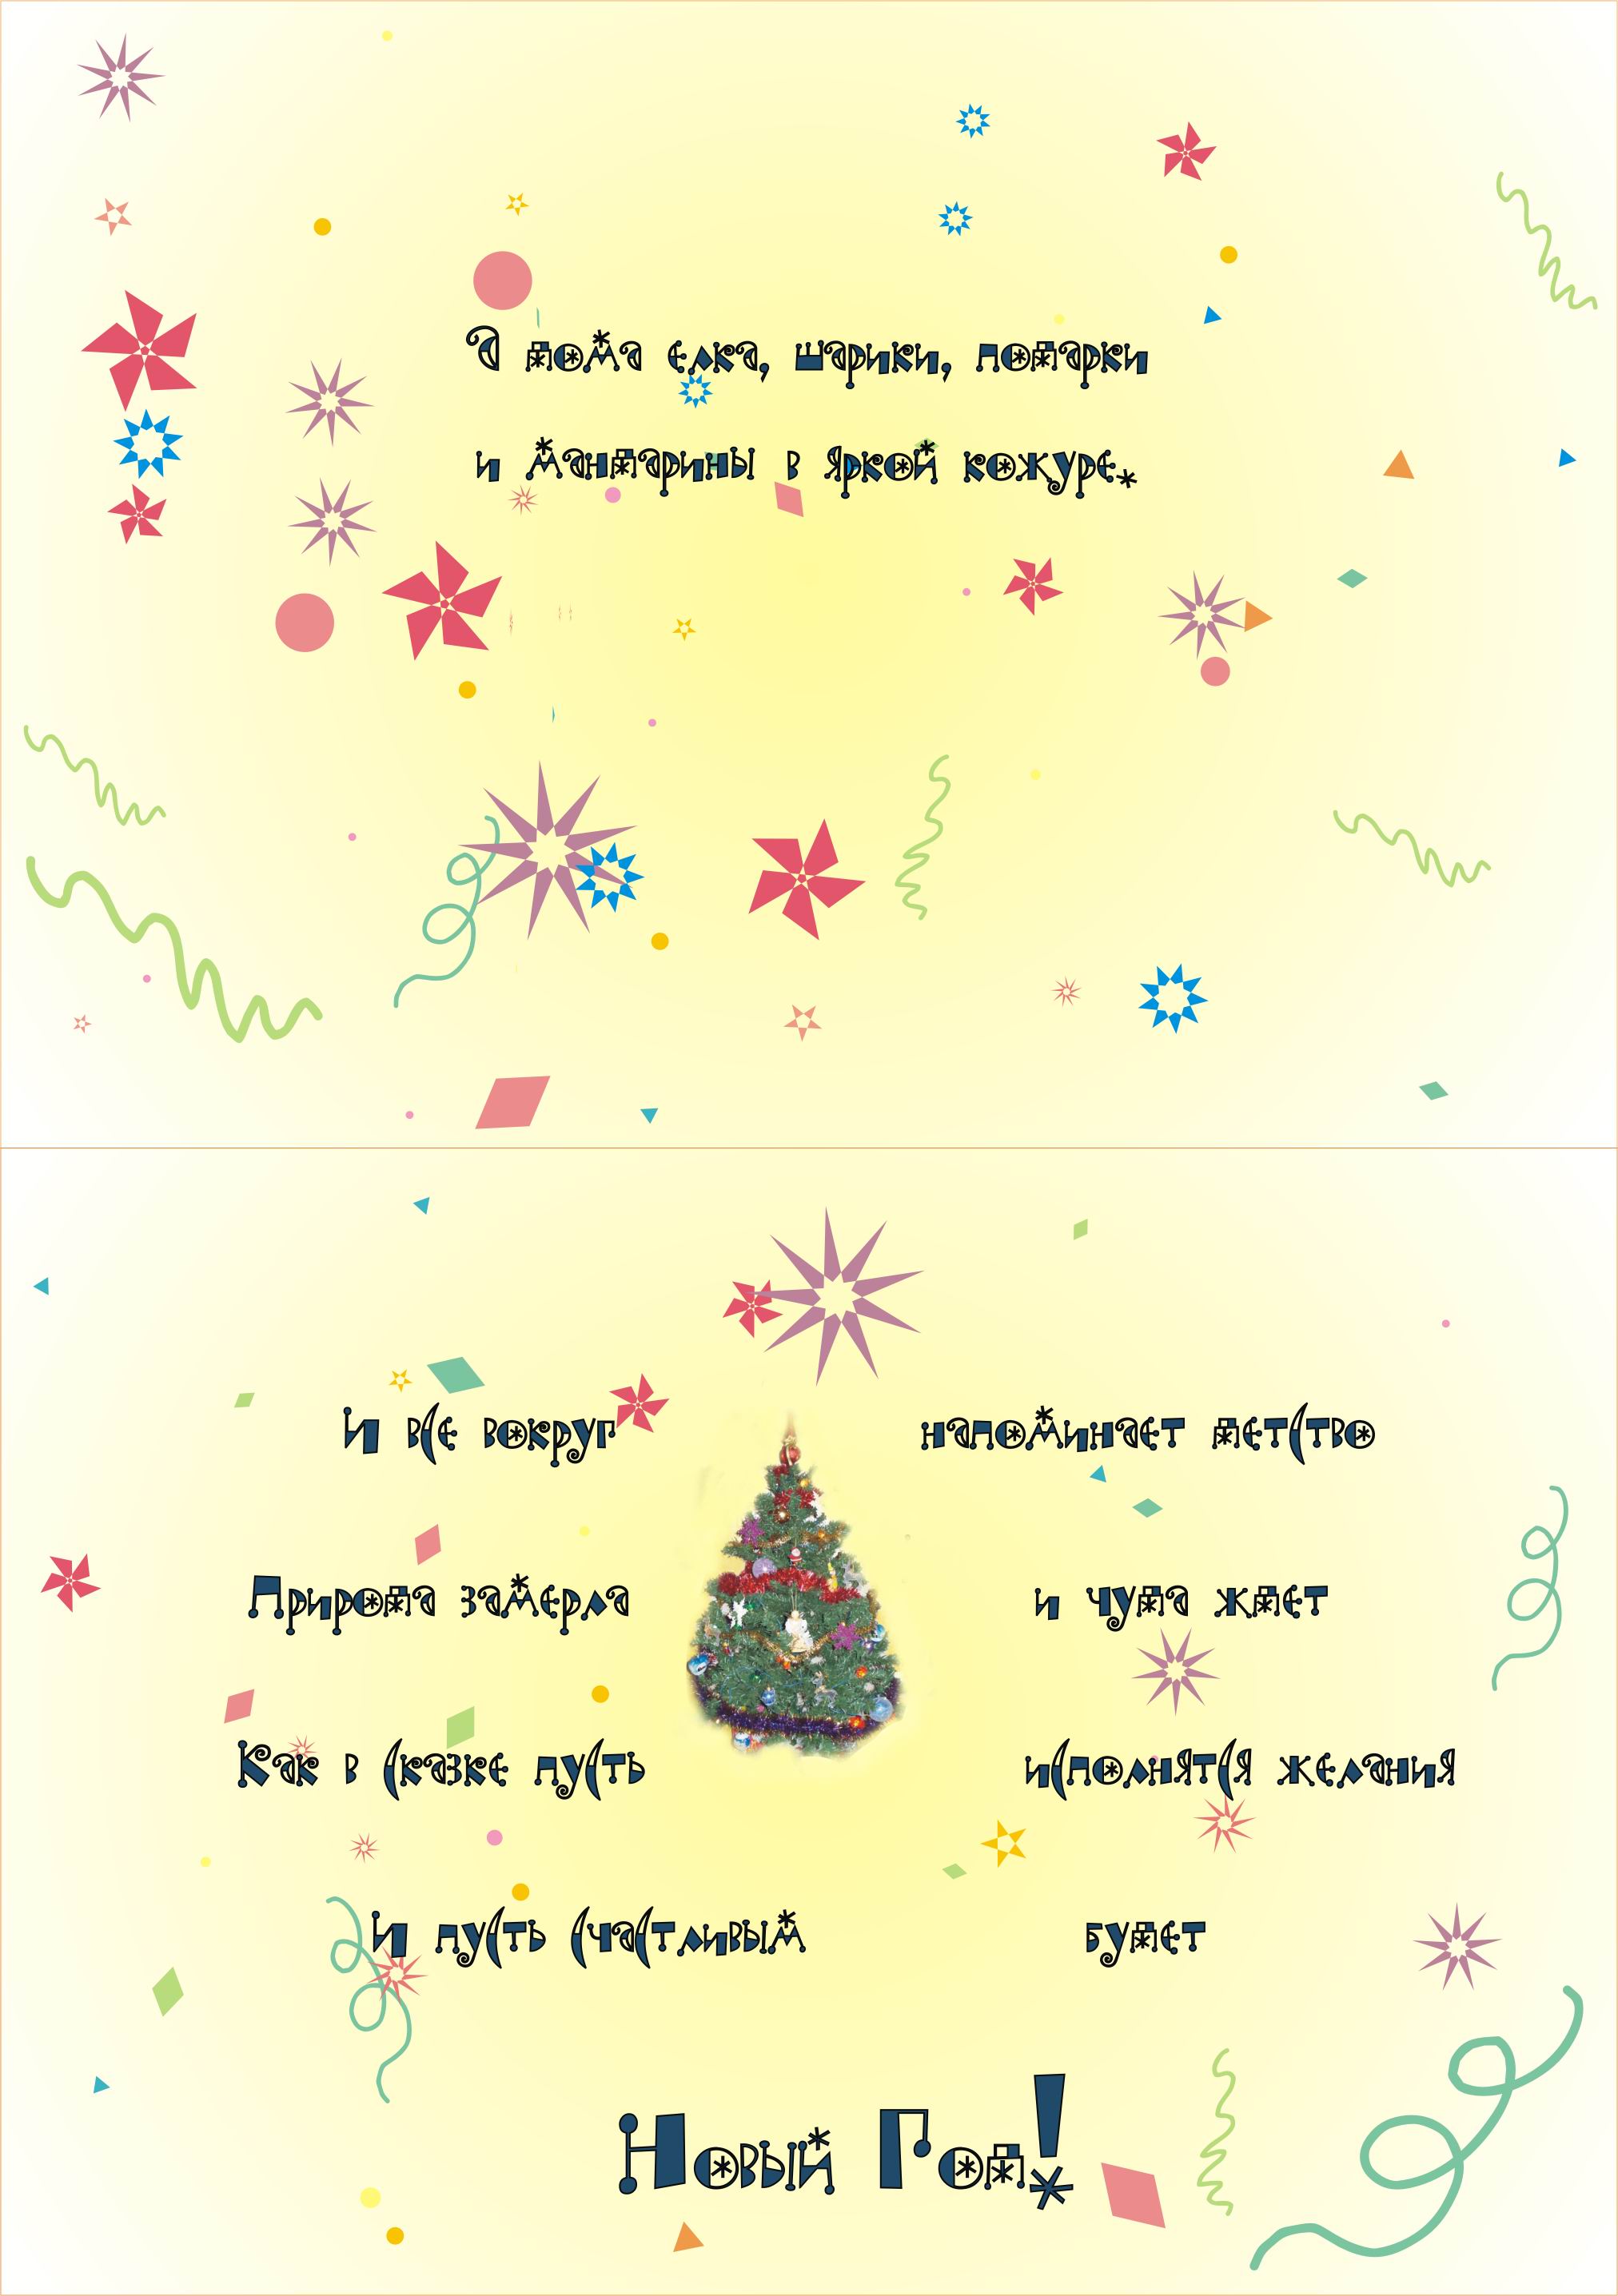 А дома елка, шарики, подарки
и мандарины в яркой кожуре.
И все вокруг напоминает детство
Природа замерла и чуда ждет
Как в сказке пусть исполнятся желания
И пусть счастливым будет
Новый Год!